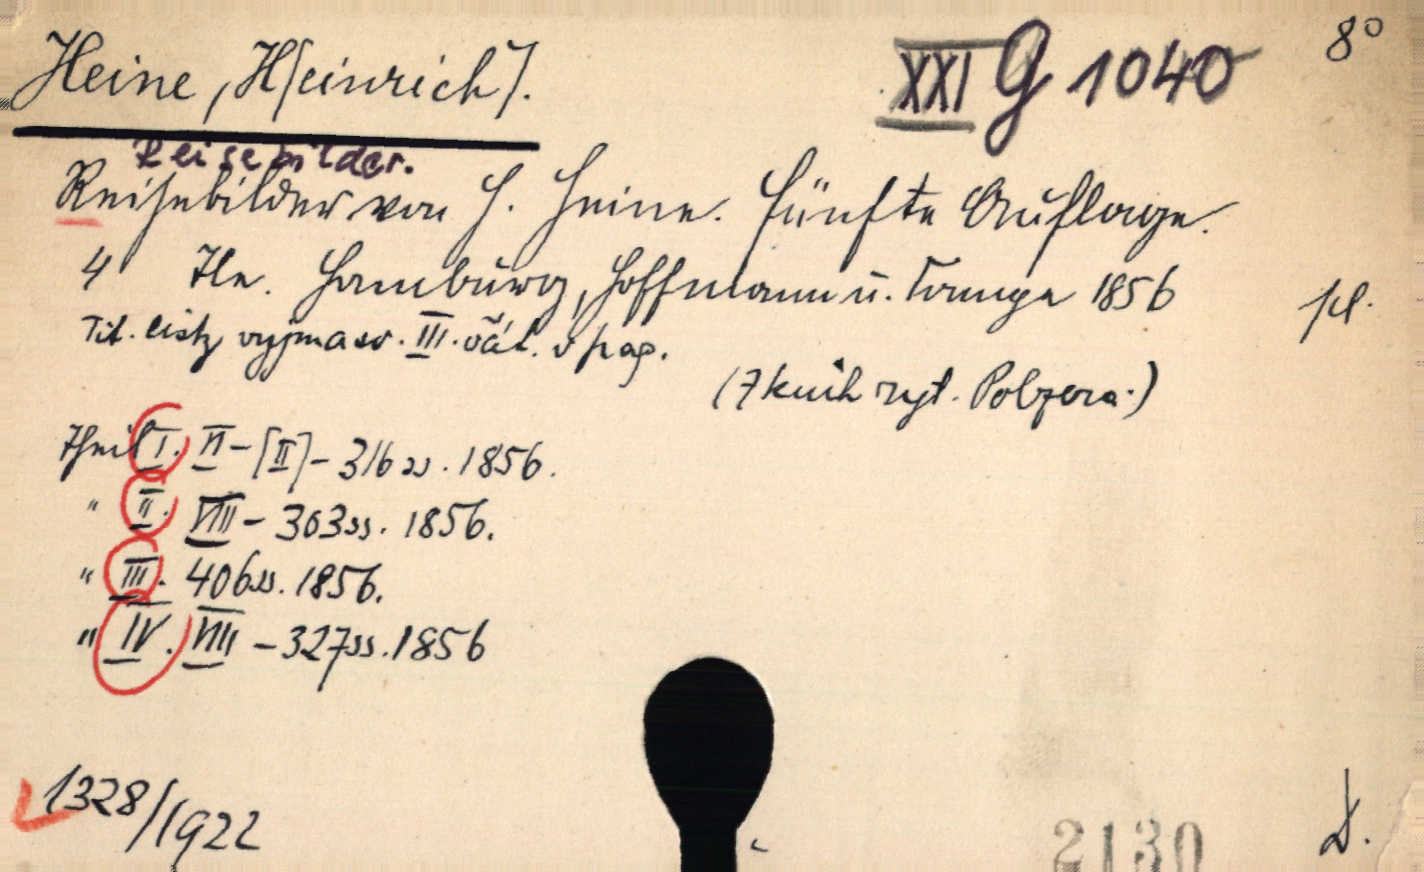 Heine, H[einrich].
XXI G 1040
8°
Reisebilder.
Reisebilder von H. Heine. Fünfte Auflage.
4 Tle. Hamburg, Hoffmann u. Campe 1856
pl.
Tit. listy vyjmaw. III. váz. v pag.
(7 knih ryt. Polzera.)
Theil I. VI-[II]-316 ss. 1856.
" II. VIII - 303 ss. 1856.
" III. 406 ss. 1856.
" IV. VIII - 327 ss. 1856
1328/1922
2130
D.